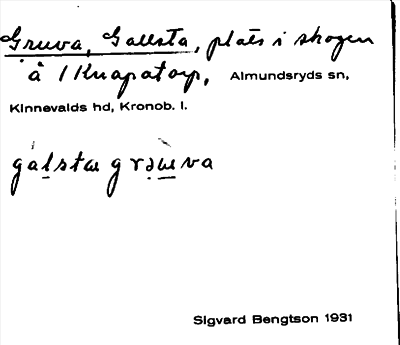 Gruva, Gallsta, plats i skogen
å 1 Knapatorp, Almundsryds sn,
Kinnevalds hd, Kronob. l.
Sigvard Bengtson 1931